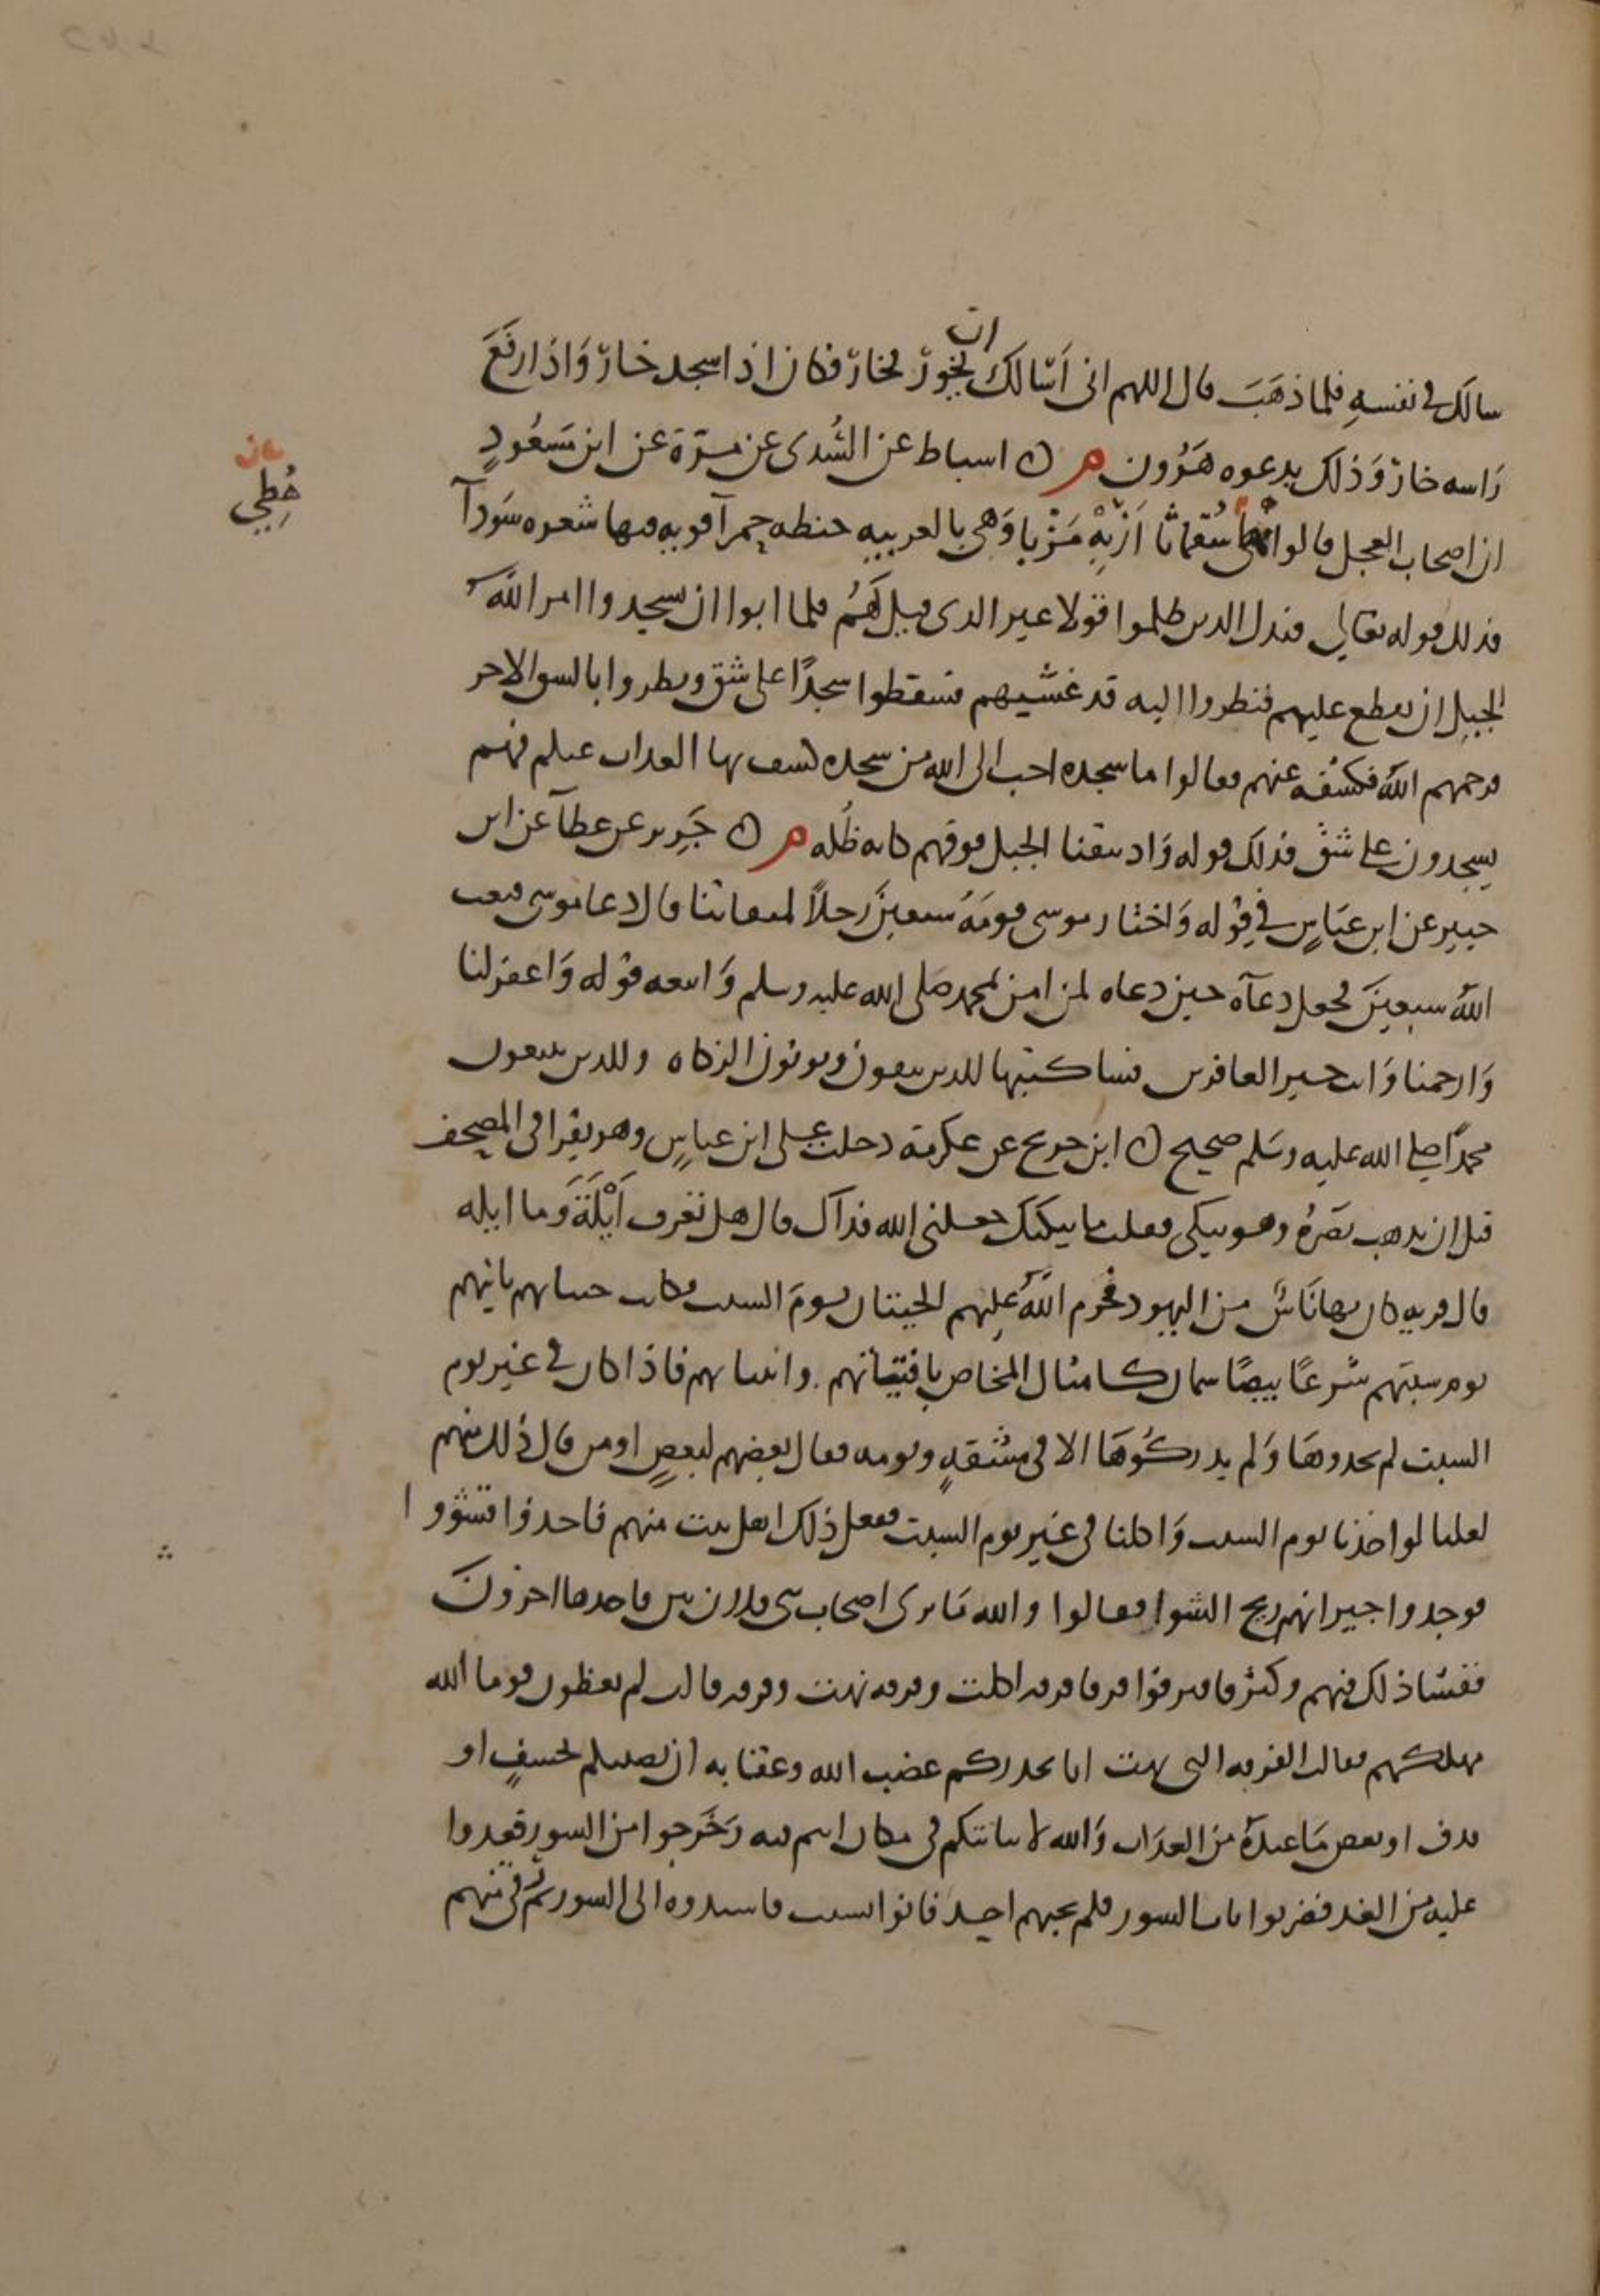 سالك في نفسه فلما ذهب قال اللهم اني اسالك ان يخور فخار فكان اذا سجد خار واذا رفع
راسه خار وذلك بدعوه هرون م ه اسباط عن السدى عن مرة عن ابن مسعود
ان اصحاب العجل قالوا هطى سقماثا ازبه مزبا وهي بالعربيه حنطه حمرآ قويه فيها شعره سودآ
هطي
فذلك قوله تعالي فبدل الذين ظلموا قولا غير الذى قيل لهم فلما ابوا ان يسجدوا امر الله
الجبل ان يقع عليهم فنظروا اليه قد غشيهم فسقطوا سجدا على شق ونظروا بالشق الاخر
فرحمهم الله فكشفه عنهم فقالوا ما سجده احب الى الله من سجده كشف بها العذاب عنكم فهم
يسجدون على شق فذلك قوله واذ نتقنا الجبل فوقهم كانه ظله م ه جرير عن عطآ عن ابن
جبير عن ابن عباس في قوله واختار موسى قومه سبعين رجلا لميقاتنا قال دعا موسى فبعث
الله سبعين فجعل دعآه حين دعاه لمن امن بمحمد صلى الله عليه وسلم واتبعه قوله واغفر لنا
وارحمنا وانت خير الغافرين فساكتبها للذين يتقون ويوتون الزكاه وللذين يتبعون
محمدا صلى الله عليه وسلم صحيح ه ابن جريج عن عكرمة دخلت على ابن عباس وهو يقرا في المصحف
قبل ان يذهب بصره وهو يبكى فقلت ما يبكيك جعلني الله فداك قال هل تعرف ايلة وما ايله
قال قريه كان بها ناس من اليهود فحرم الله عليهم الحيتان يوم السبت فكانت حيتانهم تاتيهم
يوم سبتهم شرعا بيضا سمان كامثال المخاض بافنيتانهم وابنياتهم فاذا كان في غير يوم
السبت لم يجدوها ولم يدركوها الا في مشقة وموونه فقال بعضهم لبعض او من قال ذلك منهم
لعلنا لو اخذنا يوم السبت واكلنا في غير يوم السبت ففعل ذلك اهل بيت منهم فاخذوا فشووا
فوجدوا جيرانهم ريح الشوا فقالوا والله ما نرى اصحاب بنى فلان شى فاخذها اخرون
ففشا ذلك فيهم وكثر فافترقوا فرقا فرقه اكلت وفرقه نهت وفرقه قالت لم تعظون قوما الله
مهلكهم فقالت الفرقه التى نهت انا نحذركم غضب الله وعقابه ان يصيبكم بخسف او
قذف او بعض ما عنده من العذاب والله لا نباتنكم في مكان انتم فيه وخرجوا من السور فغدوا
عليه من الغد فضربوا باب السور فلم يجبهم احد فاتوا بسبب فاسندوه الى السور ثم رقى منهم